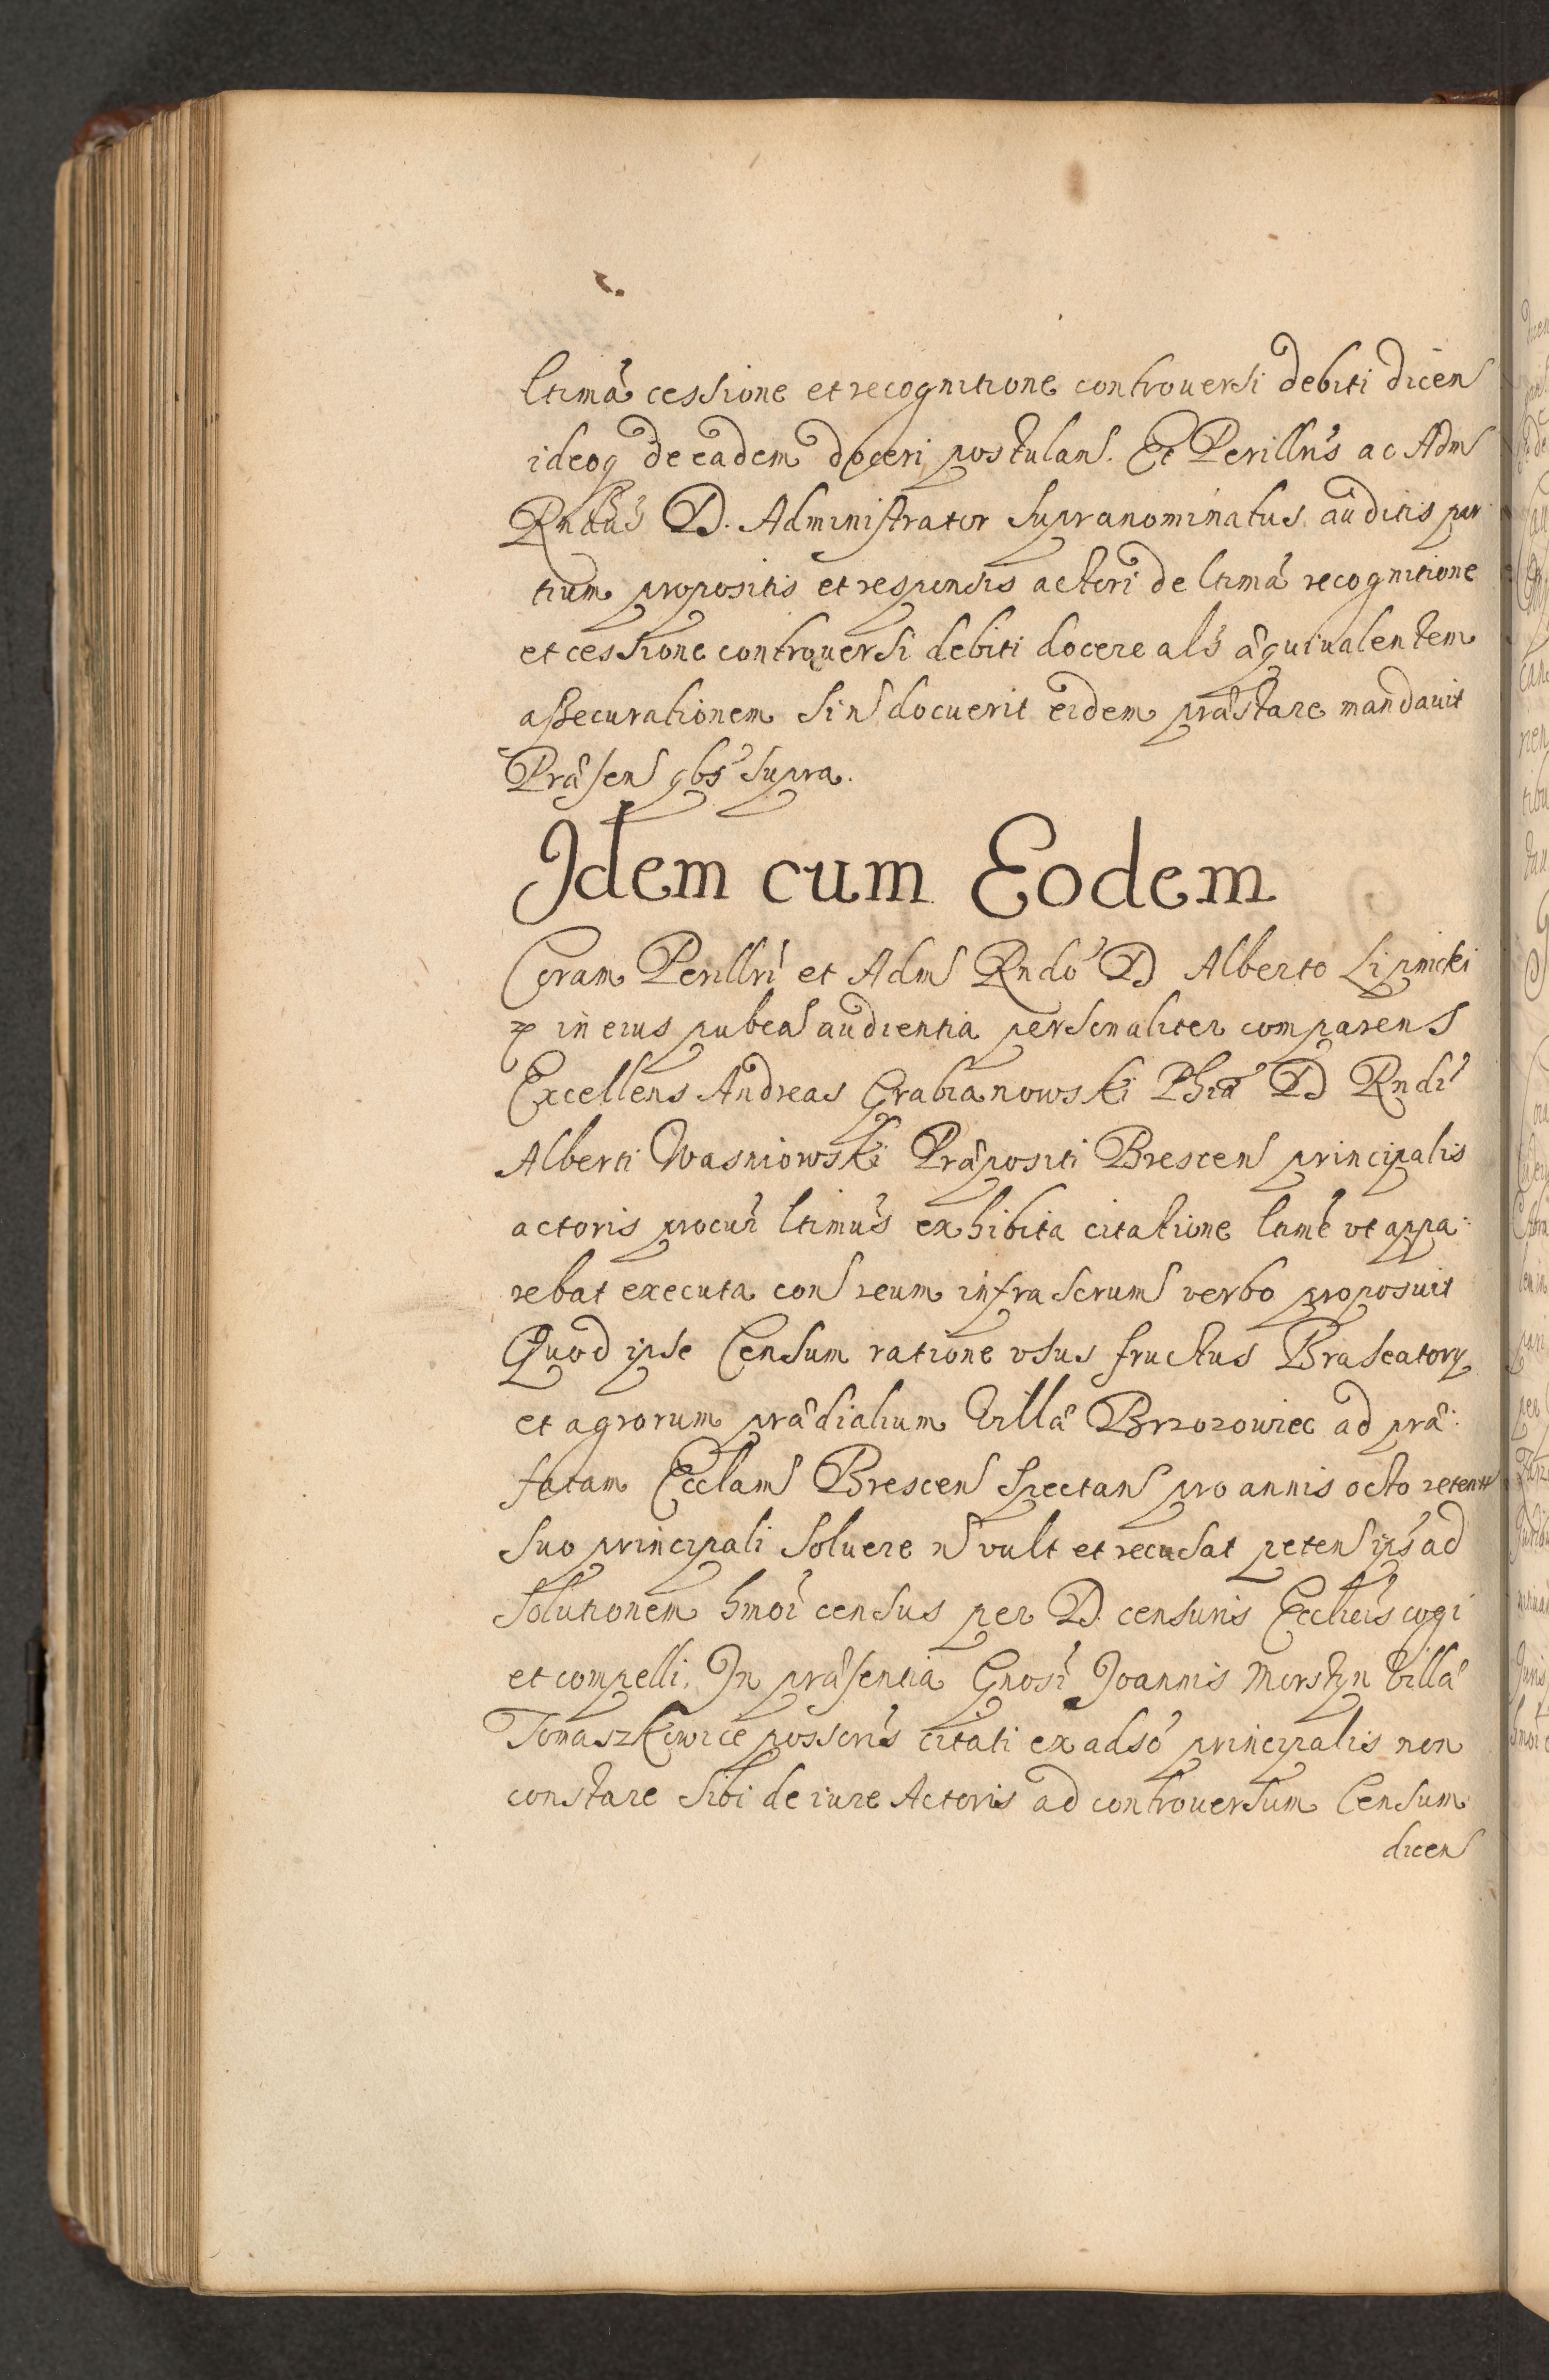 ltimã cessione et recognitione controuersi debiti dicen
ideoq de eadem doceri postulans. Et Perillris ac Adm
Rndus D. Administrator supranominatus auditis par
tium propositis et responsis actori de ltimã recognitione
et cessione controuersi debiti docere als æquiualentem
assecurationem sin docuerit eidem præstare mandauit
Præsen qbs supra.
Idem cum Eodem
Coram Perillri et Adm Rndo D Alberto Lipnicki
in eius pubca audientia personaliter comparens
Excellens Andreas Grabianowski Phiæ D Rndi
Alberti Wasniowski Præpositi Brescen principalis
actoris procur ltimus exhibita citatione ltime vt appa:
rebat executa con reum infrascrum verbo proposuit
Quod ipse Censum ratione vsus fructus Braseatory
et agrorum prædialium Villæ Brzozowiec ad præ:
fatam Ecclam Brescen spectan pro annis octo retent
suo principali soluere n vult et recusat peten ips ad
solutionem hmoi census per D. censuris Ecclicis cogi
et compelli. In præsentia Gnosi Joannis Morstyn Villæ
Tomaszkowice possoris citati ex adso principalis non
constare sibi de iure Actoris ad controuersum Censum
dicen